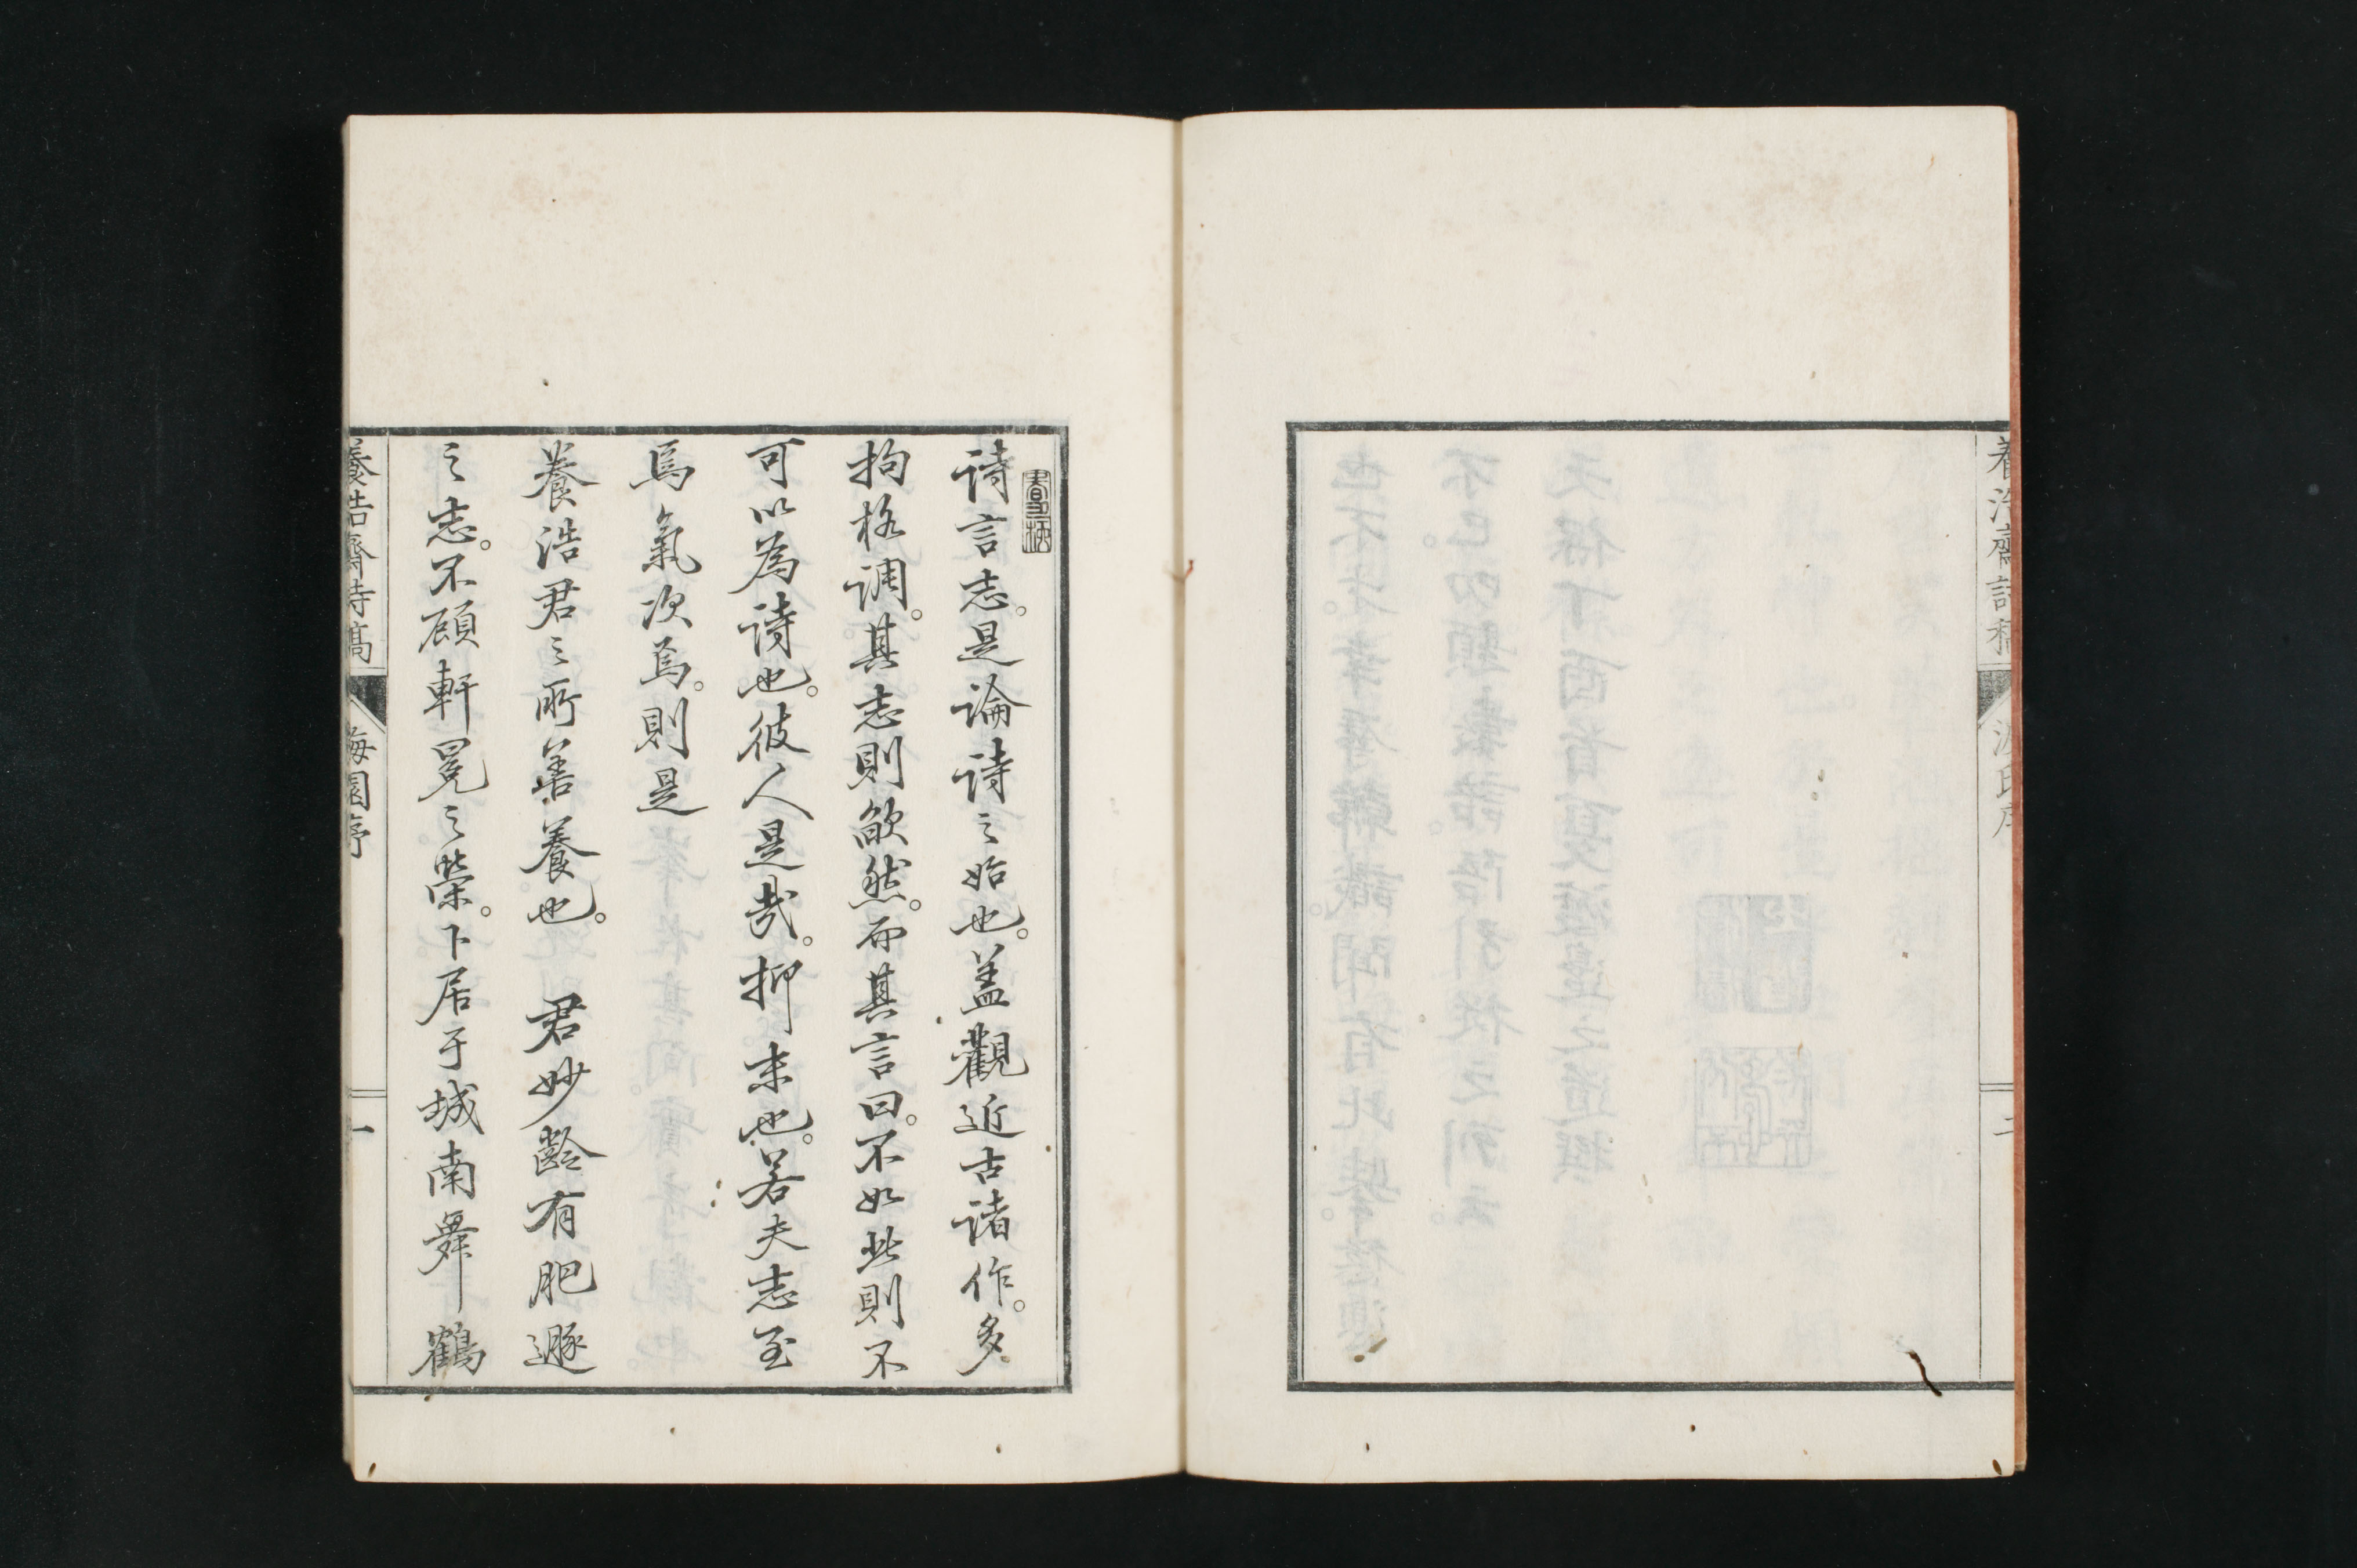 養浩齋詩稿
源氏序
二
詩言志。是論詩之始也。蓋觀近古諸作。多
拘格調。其志則欿然。而其言曰。不如此則不
可以為詩也。彼人是哉。抑末也。若夫志至
焉氣次焉。則是
養浩君之所善養也。 君妙齡有肥遯
之志。不顧軒冕之榮。卜居于城南舞鶴
養浩齋詩稿
梅園序
一